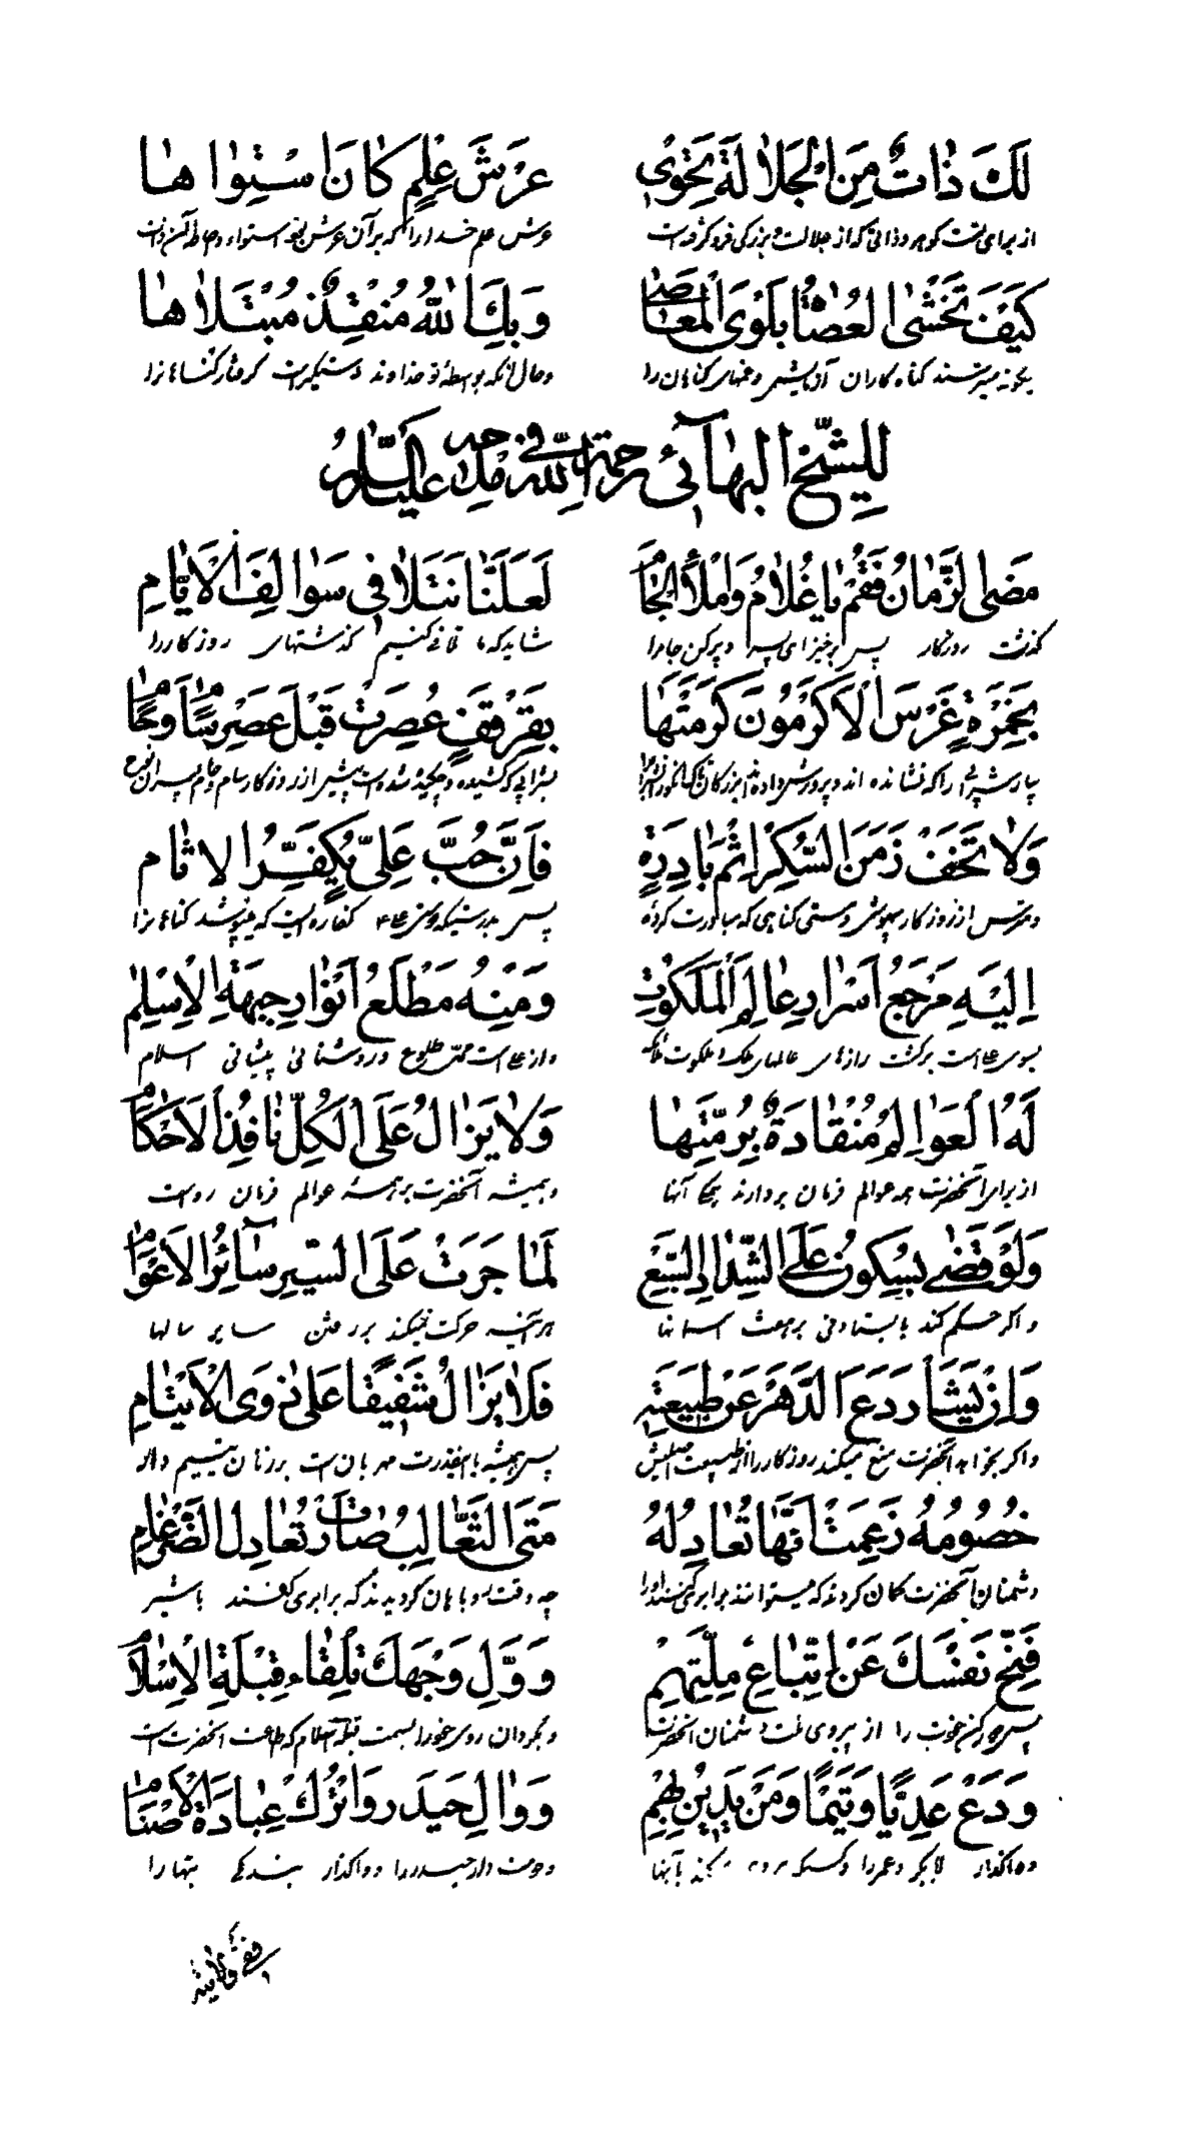 لَكَ ذَاتٌ مِنَ الْجَلَالَةِ تَحْوِی عَرْشَ عِلْمٍ كَانَ اسْتِوَاهَا
از برای تست گوهر و ذاتی که از جلالت و بزرگی فرو گرفته است عرش علم خدا را که بر آن عرش
كَيْفَ تَخْشَى الْعُصَاةُ بَلْوَى الْمَعَاصِی وَبِكَ اللّٰهُ مُنْقِذٌ مُبْتَلَاهَا
چگونه میترسند گناه کاران گناهان را و حال آنکه بواسطهٔ تو خداوند دستگیر است گرفتار گناهانرا
لِلشَّيْخِ الْبَهَآئی رحمة اللّٰه فی مدحه علیه السّلام
مَضَى الزَّمَانُ فَقُمْ يَا غُلَامُ وَامْلَأِ الْجَامَ لَعَلَّنَا نَتَلَافِی سَوَالِفَ الْأَيَّامِ
گذشت روزگار پس برخیز ای پسر و پر کن جام را شاید که ما تلافی کنیم گذشتهای روزگار را
بِخَمْرَةٍ غَرَسَ الْأَكْرَمُونَ كَرْمَتَهَا بِقَرْقَفٍ عُصِرَتْ قَبْلَ عَصْرِ سَامَ وَحَامَ
وَلَا تَخَفْ زَمَنَ السُّكْرِ إِثْمَ بَادِرَةٍ فَإِنَّ حُبَّ عَلِیٍّ يُكَفِّرُ الْآثَامَ
و مترس از روزگار بیهوشی و مستی گناهی که مبادرت کرده پس بدرستیکه کفاره ایست که میپوشد گناهانرا
إِلَيْهِ مَرْجَعُ أَسْرَارِ عَالَمِ الْمَلَكُوتِ وَمِنْهُ مَطْلَعُ أَنْوَارِ جِبْهَةِ الْإِسْلَامِ
بسوی علی است برگشت رازهای عالمهای ملک و ملکوت و از علی است محل طلوع و روشنائی پیشانی اسلام
لَهُ الْعَوَالِمُ مُنْقَادَةٌ بِرُمَّتِهَا وَلَا يَزَالُ عَلَى الْكُلِّ نَافِذَ الْأَحْكَامِ
از برای آنحضرت همه عوالم فرمان بردارند آنها و همیشه آنحضرت بر همهٔ عوالم فرمان رواست
وَلَوْ قَضَى بِسُكُونٍ عَلَى الشِّدَادِ السَّبْعِ لَمَا جَرَتْ عَلَى السَّيْرِ سَآئِرُ الْأَعْوَامِ
و اگر حکم کند بایستادنی بر هفت آسمانها هر آینه حرکت نمیکند بر رفتن سایر سالها
وَإِنْ يَشَأْ رَدَعَ الدَّهْرَ عَنْ طَبِيعَتِهِ فَلَا يَزَالُ شَفِيقًا عَلَى ذَوِی الْأَيْتَامِ
و اگر بخواهد آنحضرت منع میکند روزگار را از طبیعت اصلیش پس همیشه مهربان است
خُصُومُهُ زَعَمَتْ أَنَّهَا تُعَادِلُهُ مَتَى الثَّعَالِبُ صَارَتْ تُعَادِلُ الضِّرْغَامَ
دشمنان آنحضرت گمان کردند که میتوانند برابری کنند او را چه وقت روباهان گردیدند که برابری کنند با شیر
فَنَحِّ نَفْسَكَ عَنِ اتِّبَاعِ مِلَّتِهِمْ وَوَلِّ وَجْهَكَ تِلْقَاءَ قِبْلَةِ الْإِسْلَامِ
پس دور کن خودت را از پیروی ملت دشمنان آنحضرت و بگردان روی خود را بسمت قبله اسلام که طاعت آنحضرت است
وَدَعْ عَدِيًّا وَتَيْمًا وَمَنْ يَدِينُ لَهُمْ وَوَالِ حَيْدَرَ وَاتْرُكْ عِبَادَةَ الْأَصْنَامِ
و دوست دار حیدر را و واگذار بندگی بتها را